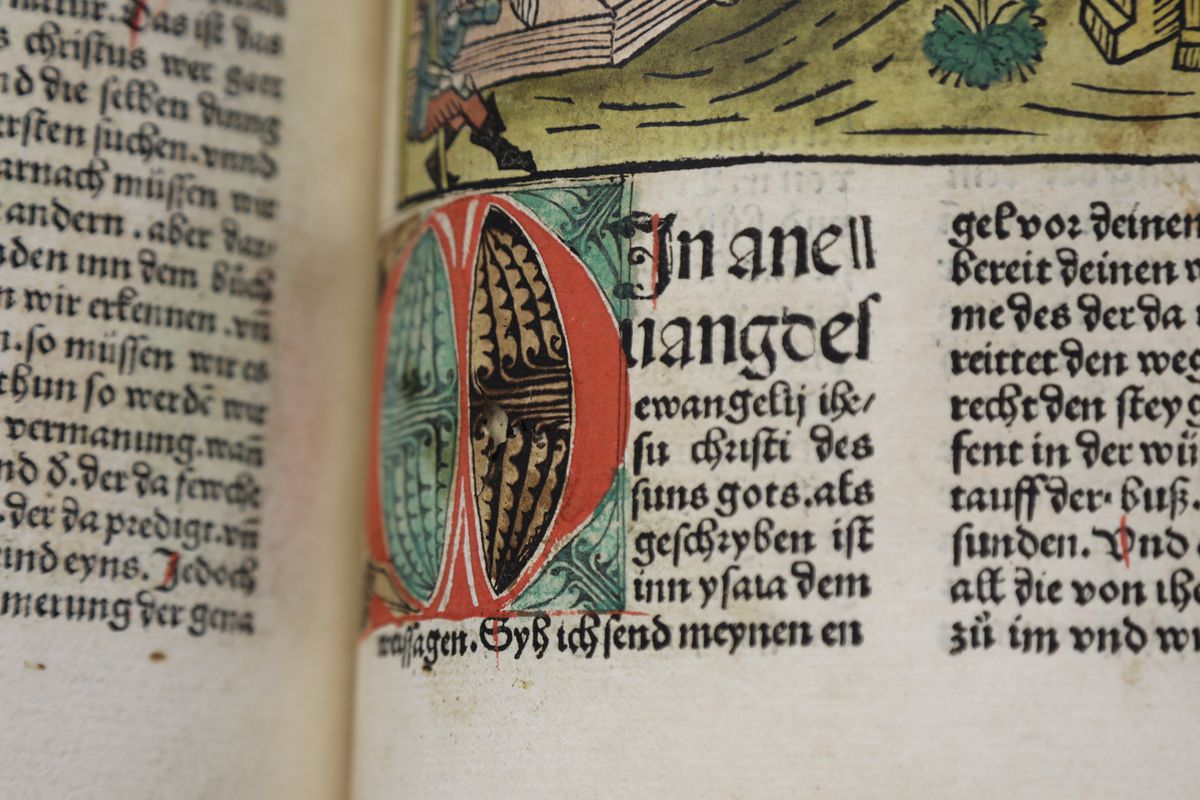 Das ist das
christus wer gaer
nd die selben ding
ersten suchen. vnnd
arnach müssen wir
andern . aber dar/
nden inn dem bůch
n wir erkennen . vñ
n. so müssen wir es
thun so werdē wir
vermanung. wañ
nd d. der da sewcht
. der da predigt. vñ
vnd eyns. Jedoch
merung der gena
D
In ane//
uangdes
ewangelij ihe/
su christi des
suns gots. als
geschryben ist
inn ysaia dem
weissagen. Syh ich send meynen en
gel vor deinen
bereit deinen
me des der da
reittet den weg
recht den steyg
sent in der wü
tauff der buß
sunden. Vnd
all die von ihe
zů im vnd w